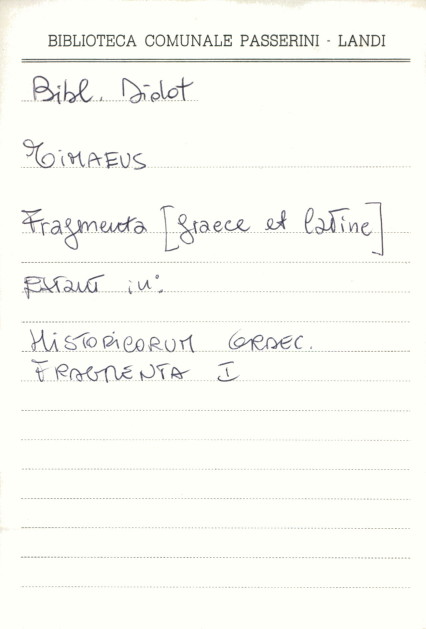 BIBLIOTECA COMUNALE PASSERINI - LANDI
Bibl. Didot
TIMAEUS
Fragmenta [graece et latine]
Extant in:
HISTORICORUM GRAEC.
FRAGMENTA I